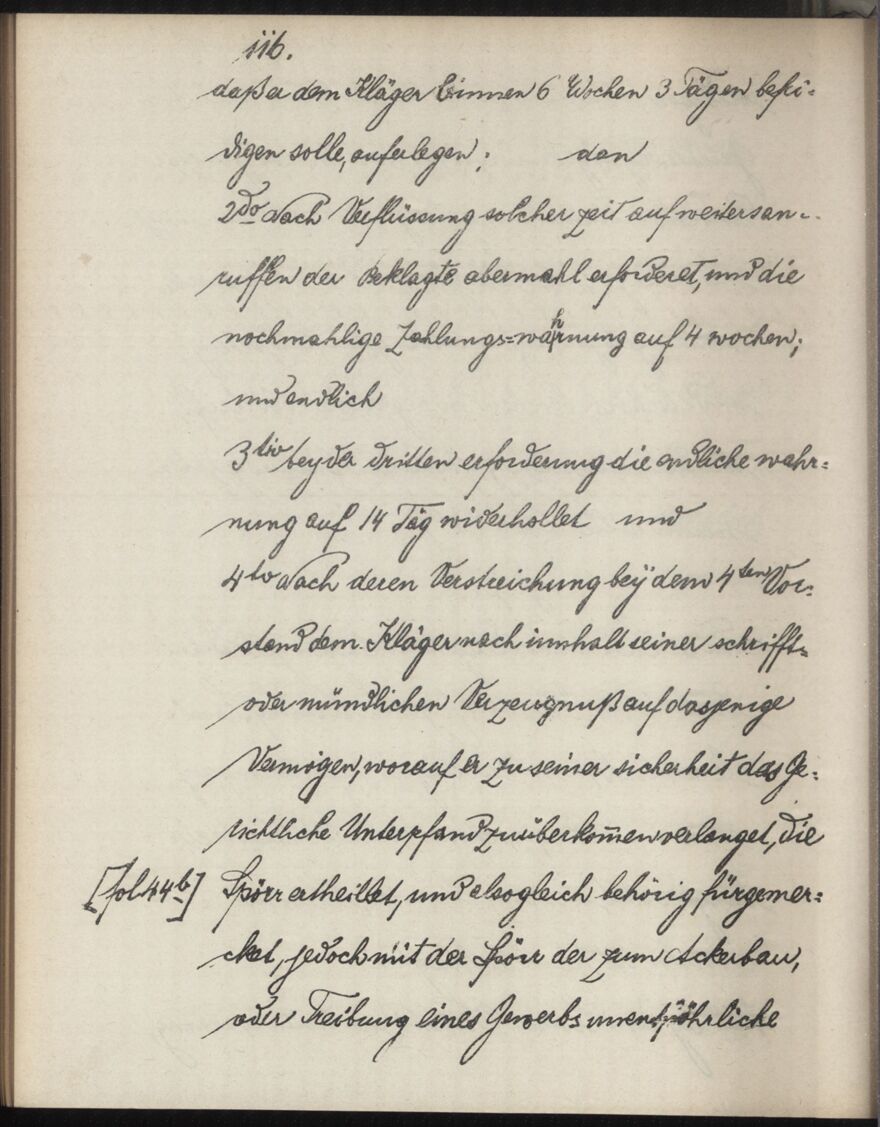 116.
daß er dem Kläger binnen 6 Wochen 3 Tägen befri-
digen solle, auferlegen; dan
2do Nach Verflüssung solcher zeit auf weiters an-
ruffen der Beklagte abermahl erforderet, und die
nochmahlige Zahlungs=wahrnung auf 4 wochen;
und endlich
3tio bey der dritten erforderung die endliche wahr=
nung auf 14 Täg widerhollet und
4to Nach deren Verstreichung beÿ dem 4ten Vor-
stand dem Kläger nach innhalt seiner schrifft=
oder mündlichen Verzeugnuß auf dasjenige
Vermögen, worauf er zu seiner sicherheit das Ge=
richtliche Unterpfand zu überkom̄en verlanget, die
[fol 44b] Spörr ertheillet, und alsogleich behörig fürgemer=
cket, jedoch mit der Spörr der zum Ackerbau,
oder Treibung eines Gewerbs unentpöhrliche